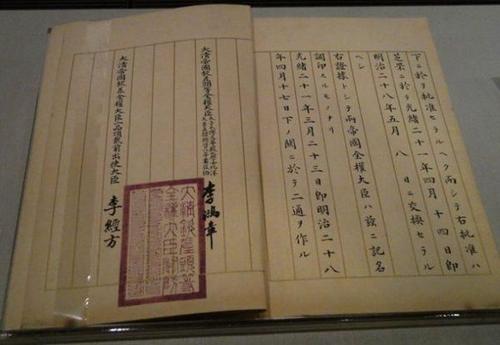 下ニ於テ批准セラルヘク而シテ右批准ハ
芝罘ニ於テ光緒二十一年四月十四日即
明治二十八年五月八日ニ交換セラル
ヘシ
右證據トシテ兩帝國全權大臣ハ茲ニ記名
調印スルモノナリ
光緒二十一年三月二十三日即明治二十八
年四月十七日下ノ關ニ於テ二通ヲ作ル
大清帝國欽差頭等全權大臣
太子太傅文華殿大學士北洋
大臣直隸總督一等肅毅伯
李鴻章
大清帝國欽差全權大臣二品頂戴前出使大臣 李經方
大清欽差頭等
全權大臣關防